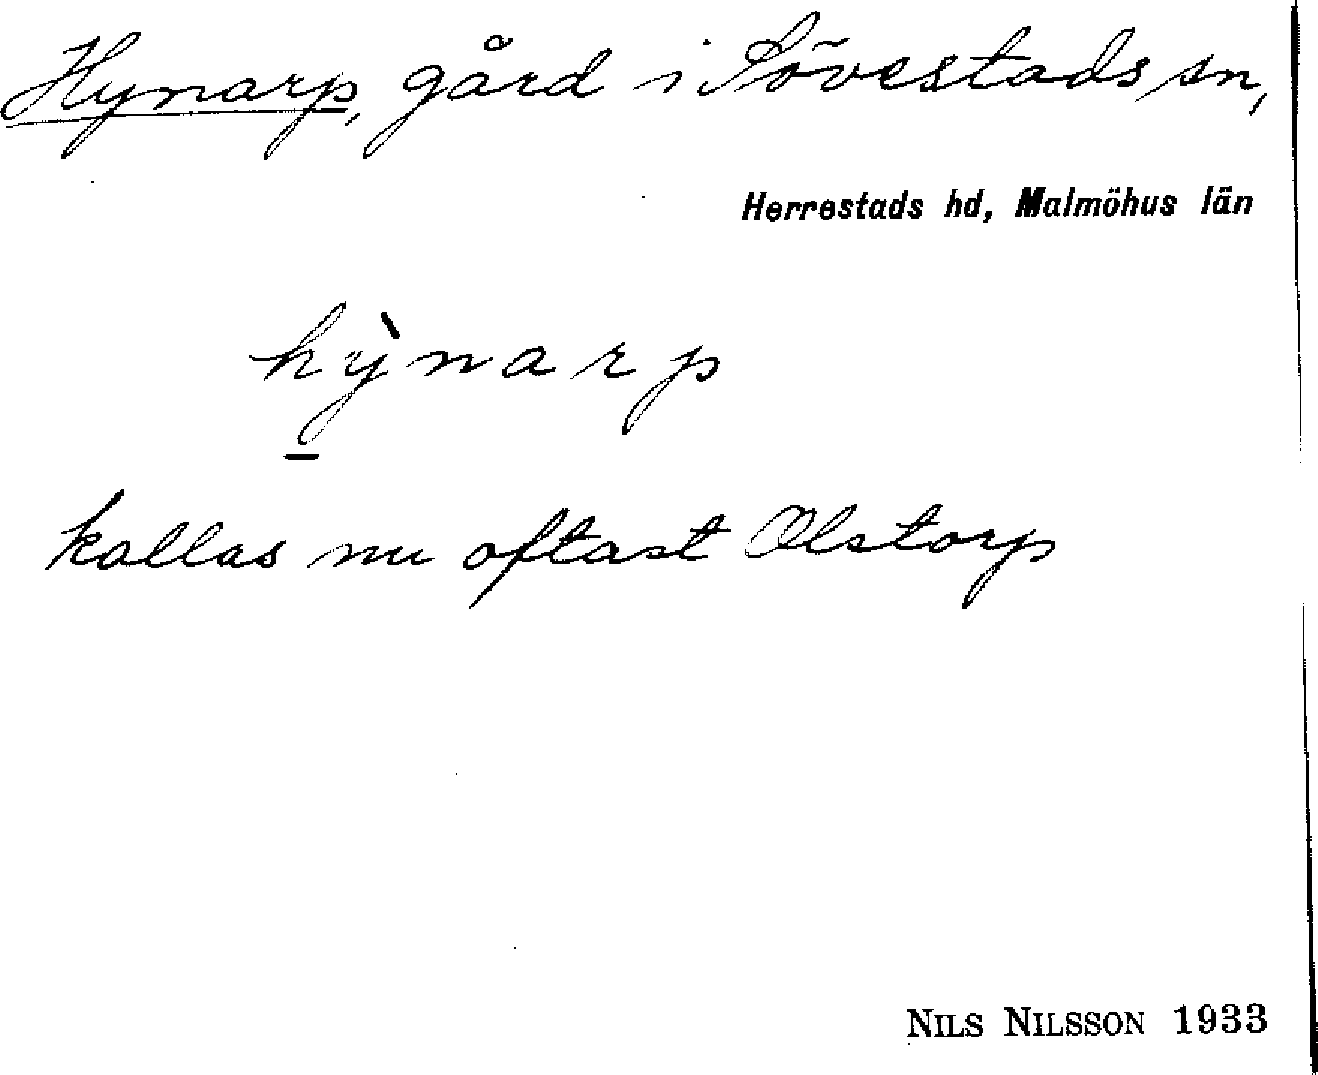 Hynarp, gård i Sövestads sn,
Herrestads hd, Malmöhus län
hỳnarp
kallas nu oftast Olstorp
NILS NILSSON 1933